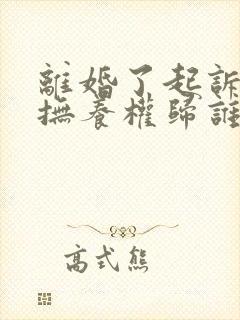 離婚了起訴
撫養權歸誰
高式熊